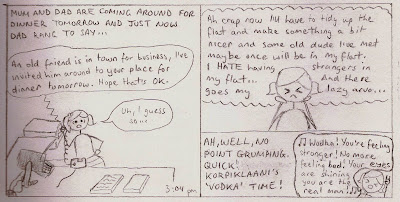 MUM AND DAD ARE COMING AROUND FOR
DINNER TOMORROW AND JUST NOW
DAD RANG TO SAY...
An old friend is in town for business, I've
invited him around to your place for
dinner tomorrow. Hope that's OK.
Uh, I guess
so...
5:04 pm
Ah crap now I'll have to tidy up the
flat and make something a bit
nicer and some old dude I've met
maybe once will be in my flat.
I HATE having strangers in
my flat... And there
goes my lazy arvo...
AH, WELL, NO
POINT GRUMPING.
QUICK!
KORPIKLAANI'S
'VODKA' TIME!
♫ Wodka! You're feeling
stronger! No more
feeling bad! Your eyes
are shining
you are the
real man! ♫♫